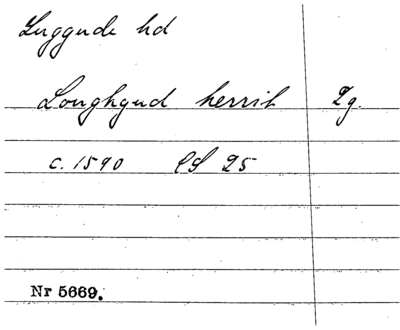 Luggude hd
Loughgud herrit 2g.
c. 1590 CS 25
Nr 5669.